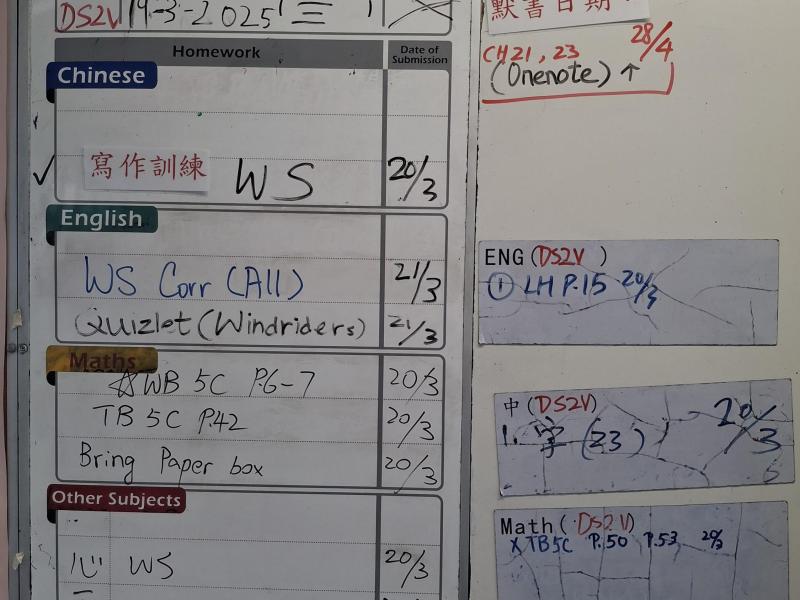 DS2V 19-3-2025(三)
Homework Date of Submission
Chinese
寫作訓練 WS 20/3
English
WS Corr (All) 21/3
Quizlet (Windriders) 21/3
Maths
☆WB 5C P.6-7 20/3
TB 5C P.42 20/3
Bring Paper box 20/3
Other Subjects
心 WS 20/3
默書日期
CH21, 23 28/4
(Onenote) ↑
ENG (DS2V)
① LH P.15 20/3
中 (DS2V)
1. 字 (23) 20/3
Math (DS2V)
X TB5C P.50 P.53 20/3